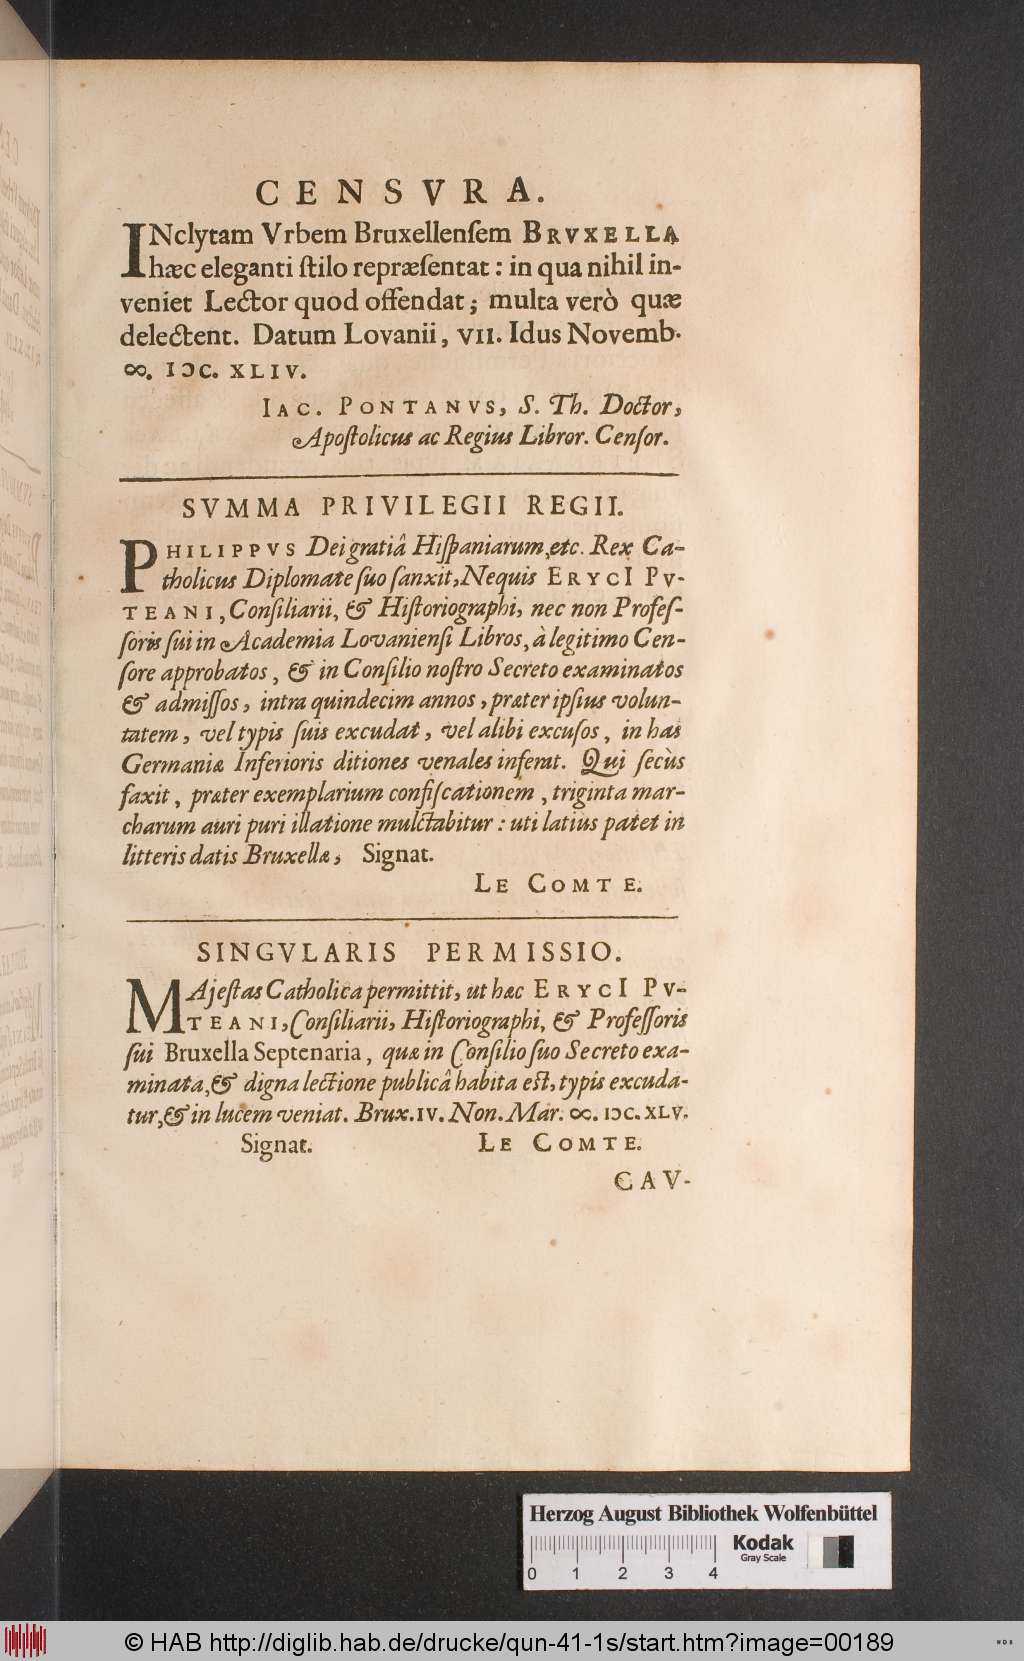 CENSVRA.
INclytam Vrbem Bruxellenſem BRVXELLA
hæc eleganti ſtilo repræſentat: in qua nihil in-
veniet Lector quod offendat; multa verò quæ
delectent. Datum Lovanii, VII. Idus Novemb.
∞. IƆC. XLIV.
IAC. PONTANVS, S. Th. Doctor,
Apoſtolicus ac Regius Libror. Cenſor.
SVMMA PRIVILEGII REGII.
PHILIPPVS Dei gratiâ Hiſpaniarum, etc. Rex Ca-
tholicus Diplomate ſuo ſanxit, Nequis ERYCI PV-
TEANI, Conſiliarii, & Hiſtoriographi, nec non Profeſ-
ſoris ſui in Academia Lovanienſi Libros, à legitimo Cen-
ſore approbatos, & in Conſilio noſtro Secreto examinatos
& admiſſos, intra quindecim annos, præter ipſius volun-
tatem, vel typis ſuis excudat, vel alibi excuſos, in has
Germaniæ Inferioris ditiones venales inferat. Qui ſecùs
faxit, præter exemplarium confiſcationem, triginta mar-
charum auri puri illatione mulctabitur: uti latius patet in
litteris datis Bruxellæ, Signat.
LE COMTE.
SINGVLARIS PERMISSIO.
MAjeſtas Catholica permittit, ut hæc ERYCI PV-
TEANI, Conſiliarii, Hiſtoriographi, & Profeſſoris
ſui Bruxella Septenaria, quæ in Conſilio ſuo Secreto exa-
minata, & digna lectione publicâ habita eſt, typis excuda-
tur, & in lucem veniat. Brux. IV. Non. Mar. ∞. IƆC. XLV.
Signat. LE COMTE.
CAV-
Herzog August Bibliothek Wolfenbüttel
Kodak
Gray Scale
0 1 2 3 4
© HAB http://diglib.hab.de/drucke/qun-41-1s/start.htm?image=00189